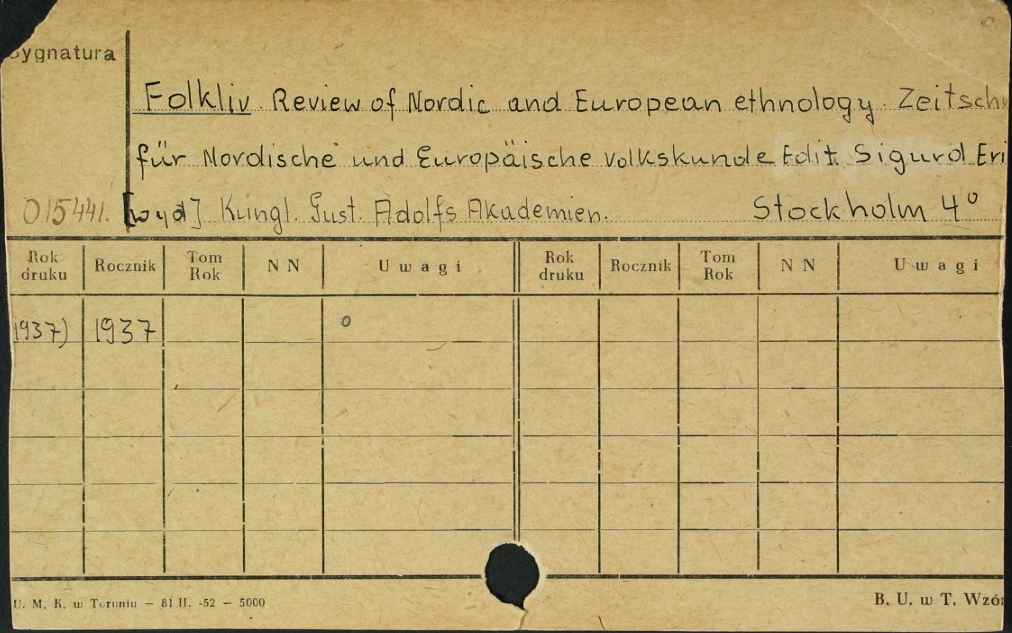 Sygnatura
Folkliv. Review of Nordic and European ethnology. Zeitschr
für Nordische und Europäische Volkskunde Edit. Sigurd Eri
015441. [wyd] Kungl. Gust. Adolfs Akademien. Stockholm 4°
Rok druku Rocznik Tom Rok N N Uwagi Rok druku Rocznik Tom Rok N N Uwagi
1937) 1937
U. M. K. w Toruniu — 81 II. -52 — 5000 B. U. w T. Wzór